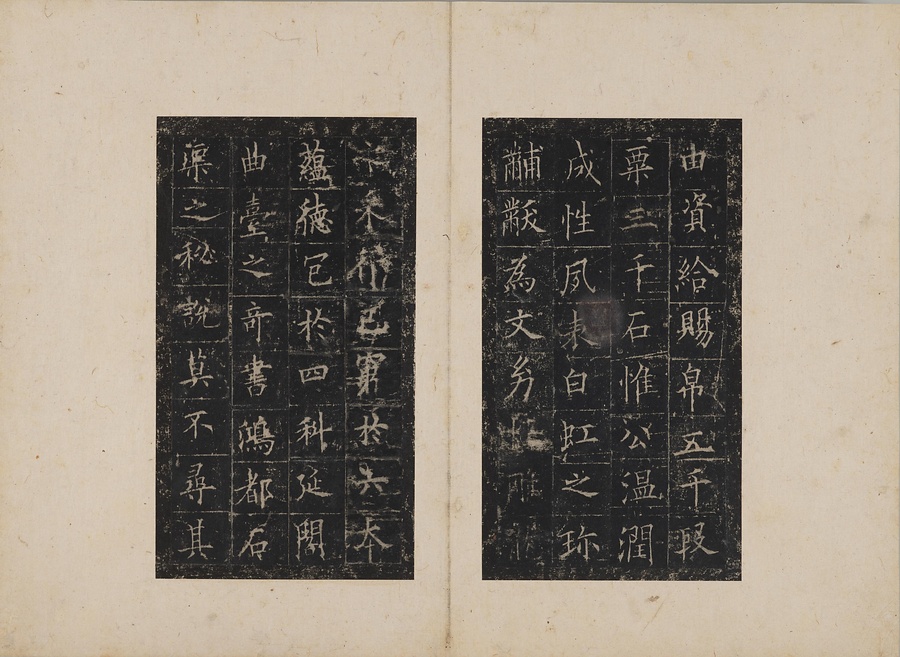 由資給賜帛五千段
粟二千石惟公溫潤
成性夙表白虹之珎
黼黻為文
已窮於六本
蘊徳包於四科延閣
曲臺之奇書鴻都石
渠之秘説莫不尋其